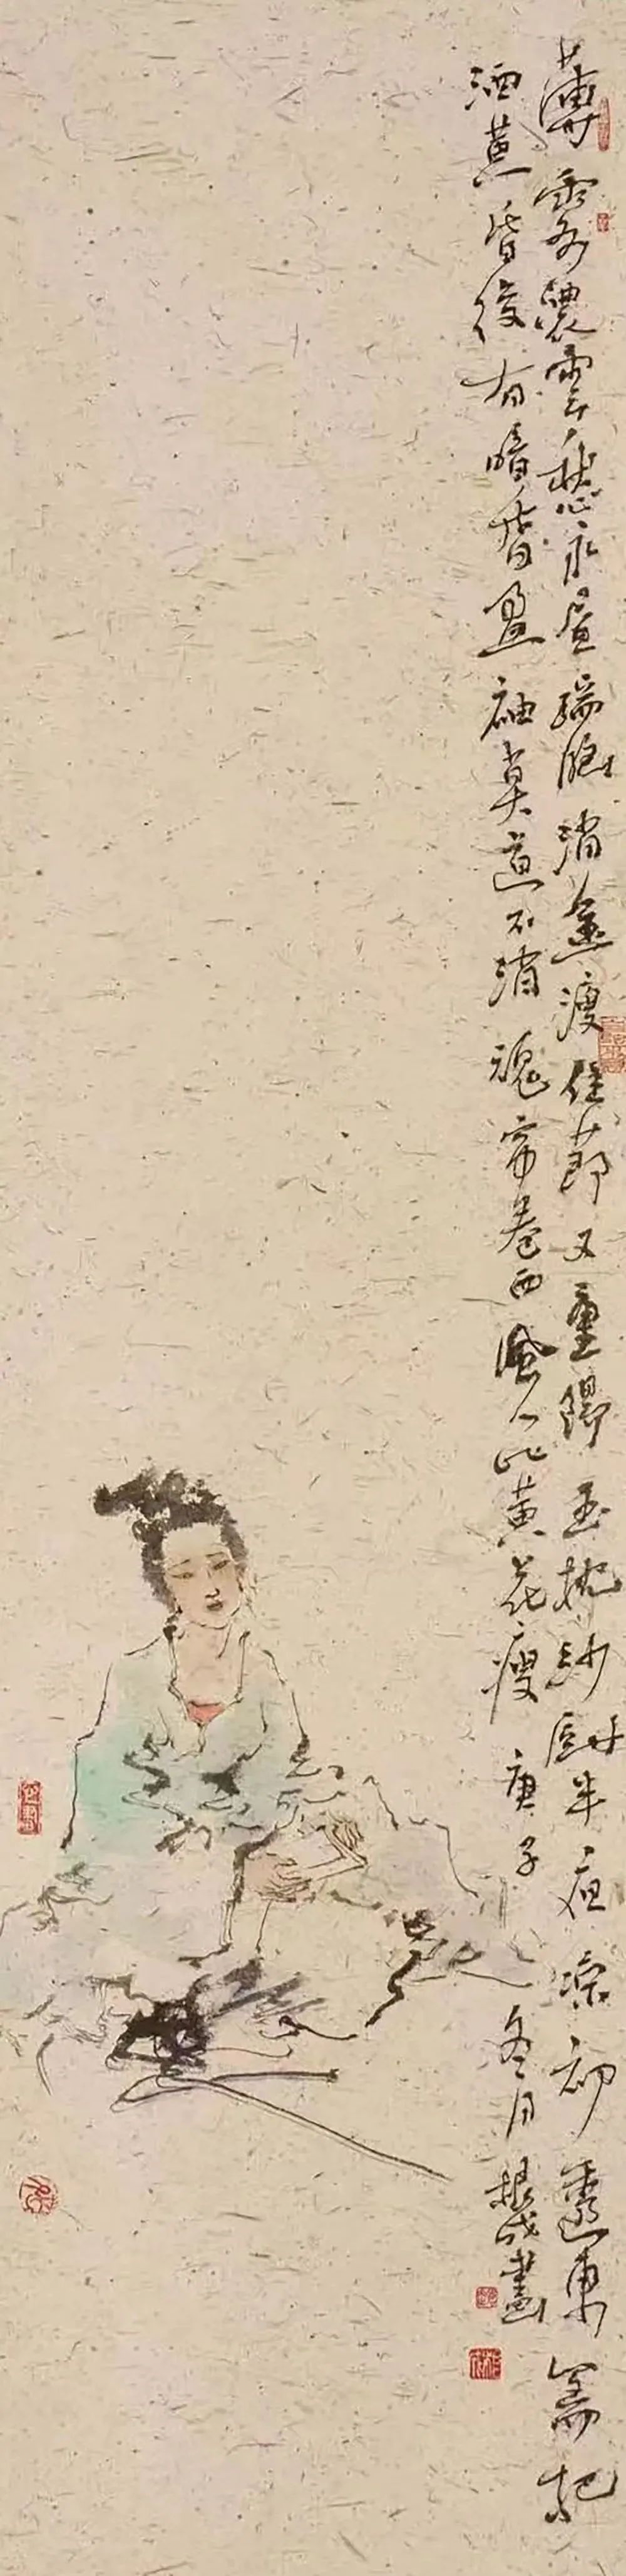 薄霧濃雲愁永昼瑞腦消金佳節又重陽玉枕紗厨半夜凉初透東籬把
酒黄昏後有暗香盈袖莫道不消魂帘卷西風人比黄花瘦 庚子冬月根成畫